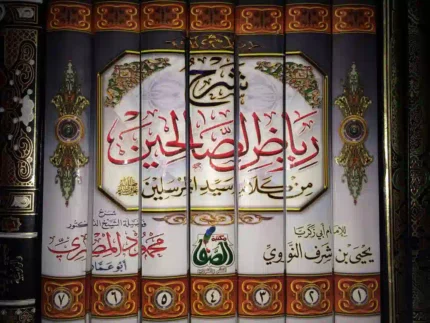 شرح
رياض الصالحين
من كلام سيد المرسلين
للإمام أبي زكريا
يحيى بن شرف النووي
شرح
فضيلة الشيخ الدكتور
محمود المصري
أبو عمار
مكتبة
الصفا
١
٢
٣
٤
٥
٦
٧